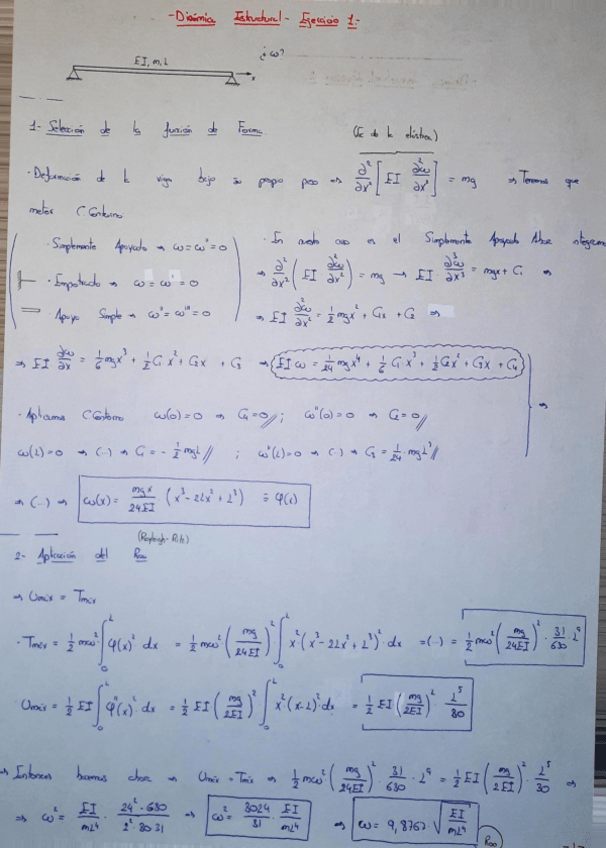 - Dinámica Estructural - Ejercicio 1:-
¿ω?
EI, m, L
x
1- Selección de la función de Forma
(Ec de la elástica)
· Deformación de la viga bajo su propio peso ⇒ ∂²/∂x² [EI ∂²ω/∂x²] = mg ⇒ Tenemos que
meter C Contorno
· Simplemente Apoyado → ω = ω'' = 0
· Empotrado → ω = ω' = 0
· Apoyo Simple → ω'' = ω''' = 0
· En nuestro caso es el Simplemente Apoyado
⇒ ∂²/∂x² (EI ∂²ω/∂x²) = mg → EI ∂³ω/∂x³ = mgx + C₁ ⇒
⇒ EI ∂²ω/∂x² = 1/2 mgx² + C₁x + C₂ ⇒
⇒ EI ∂ω/∂x = 1/6 mgx³ + 1/2 C₁x² + C₂x + C₃ ⇒ EI ω = 1/24 mgx⁴ + 1/6 C₁x³ + 1/2 C₂x² + C₃x + C₄
⇒
· Aplicamos C Contorno ω(0) = 0 ⇒ C₄ = 0 // ; ω''(0) = 0 ⇒ C₂ = 0 //
ω(L) = 0 ⇒ (...) ⇒ C₁ = - 1/2 mgL // ; ω''(L) = 0 ⇒ (...) ⇒ C₃ = 1/24 mgL³ //
⇒ (...) ⇒ ω(x) = mgx/24EI (x³ - 2Lx² + L³) ≡ φ(x)
(Rayleigh-Ritz)
2- Aplicación del
⇒ Umáx = Tmáx
· Tmáx = 1/2 mω² ∫₀ᴸ φ(x)² dx = 1/2 mω² (mg/24EI)² ∫₀ᴸ x² (x³ - 2Lx² + L³)² dx = (...) = 1/2 mω² (mg/24EI)² · 31/630 L⁹
· Umáx = 1/2 EI ∫₀ᴸ φ''(x)² dx = 1/2 EI (mg/2EI)² ∫₀ᴸ x² (x-L)² dx = 1/2 EI (mg/2EI)² L⁵/30
⇒ Entonces hacemos ahora ⇒ Umáx = Tmáx ⇒ 1/2 mω² (mg/24EI)² 31/630 · L⁹ = 1/2 EI (mg/2EI)² · L⁵/30 ⇒
⇒ ω² = EI/mL⁴ · 24² · 630/2² · 30 · 31 ⇒ ω² = 3024/31 · EI/mL⁴ ⇒ ω = 9,8767 · √(EI/mL⁴)